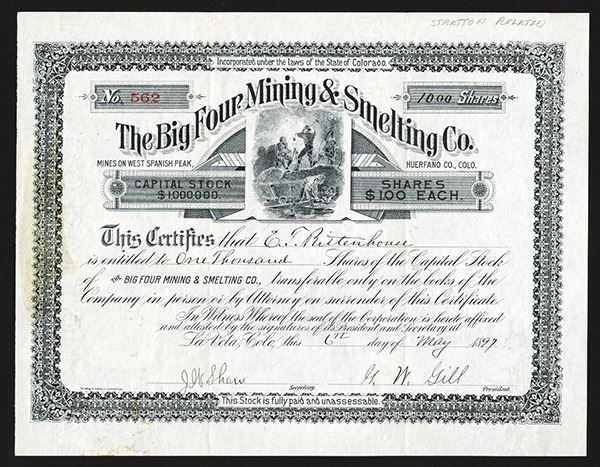 STRATTON RELATED
Incorporated under the Laws of the State of Colorado.
No. 562
1000 Shares
The Big Four Mining & Smelting Co.
MINES ON WEST SPANISH PEAK,
HUERFANO CO., COLO.
CAPITAL STOCK
$1000000.
SHARES
$100 EACH.
This Certifies that E. T. Rittenhouse
is entitled to One Thousand Shares of the Capital Stock
of THE BIG FOUR MINING & SMELTING CO., transferable only on the books of the
Company in person or by Attorney on surrender of this Certificate.
In Witness Whereof the seal of the Corporation is hereto affixed
and attested by the signatures of its President and Secretary at
La Veta, Colo, this 6th day of May 1897
J W Shaw
Secretary.
G. W. Gill
President.
This Stock is fully paid and unassessable.